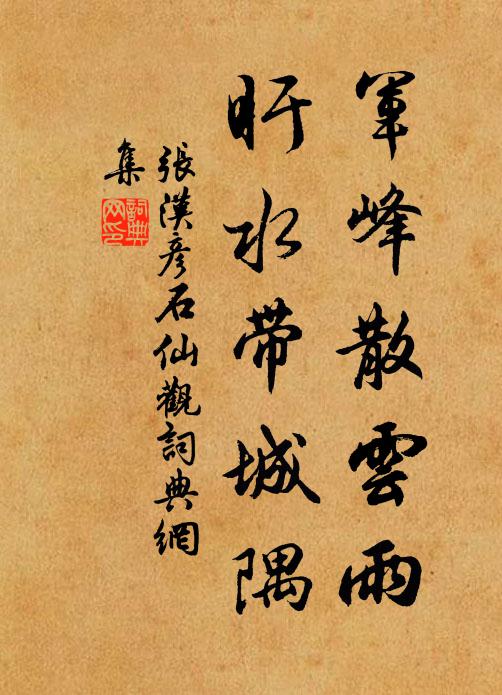 軍峰散雲雨
盱水帶城隅
張漢彥石仙觀詞典網
集
詞典
网印